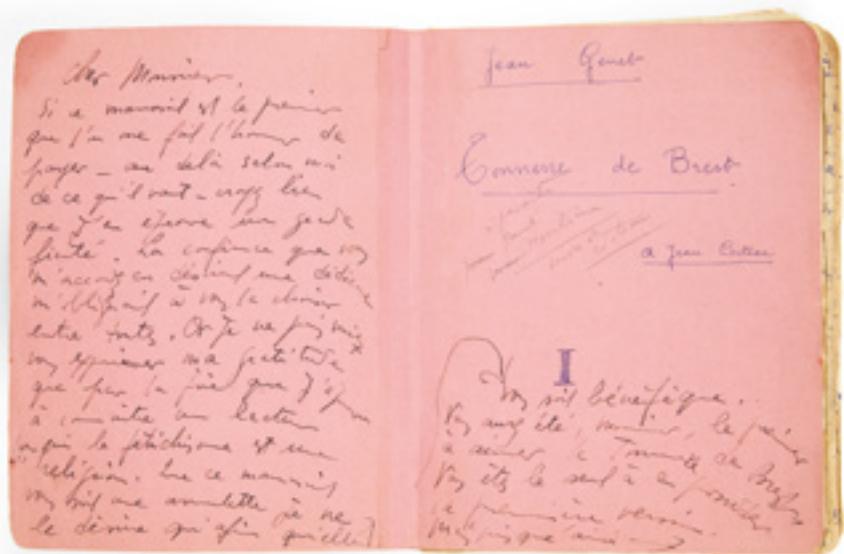 Cher Monsieur,
Si ce manuscrit est le premier
que l'on me fait l'honneur de
payer – au delà selon moi
de ce qu'il vaut – croyez bien
que j'en éprouve une grande
fierté. La confiance que vous
m'accordez en désirant une dédicace
m'obligeait à vous la donner
entre toutes. Or je ne puis mieux
vous exprimer ma gratitude
que par la joie que j'
à connaître un lecteur
qui le fétichisme est une
religion. Que ce manuscrit
vous soit une amulette je ne
le désire qu'afin qu'elle
Jean Genet
Tonnerre de Brest
à Jean Cocteau
I
vous soit bénéfique.
Vous avez été, monsieur, le premier
à aimer le Tonnerre de Brest
Vous êtes le seul à en posséder
la première version.